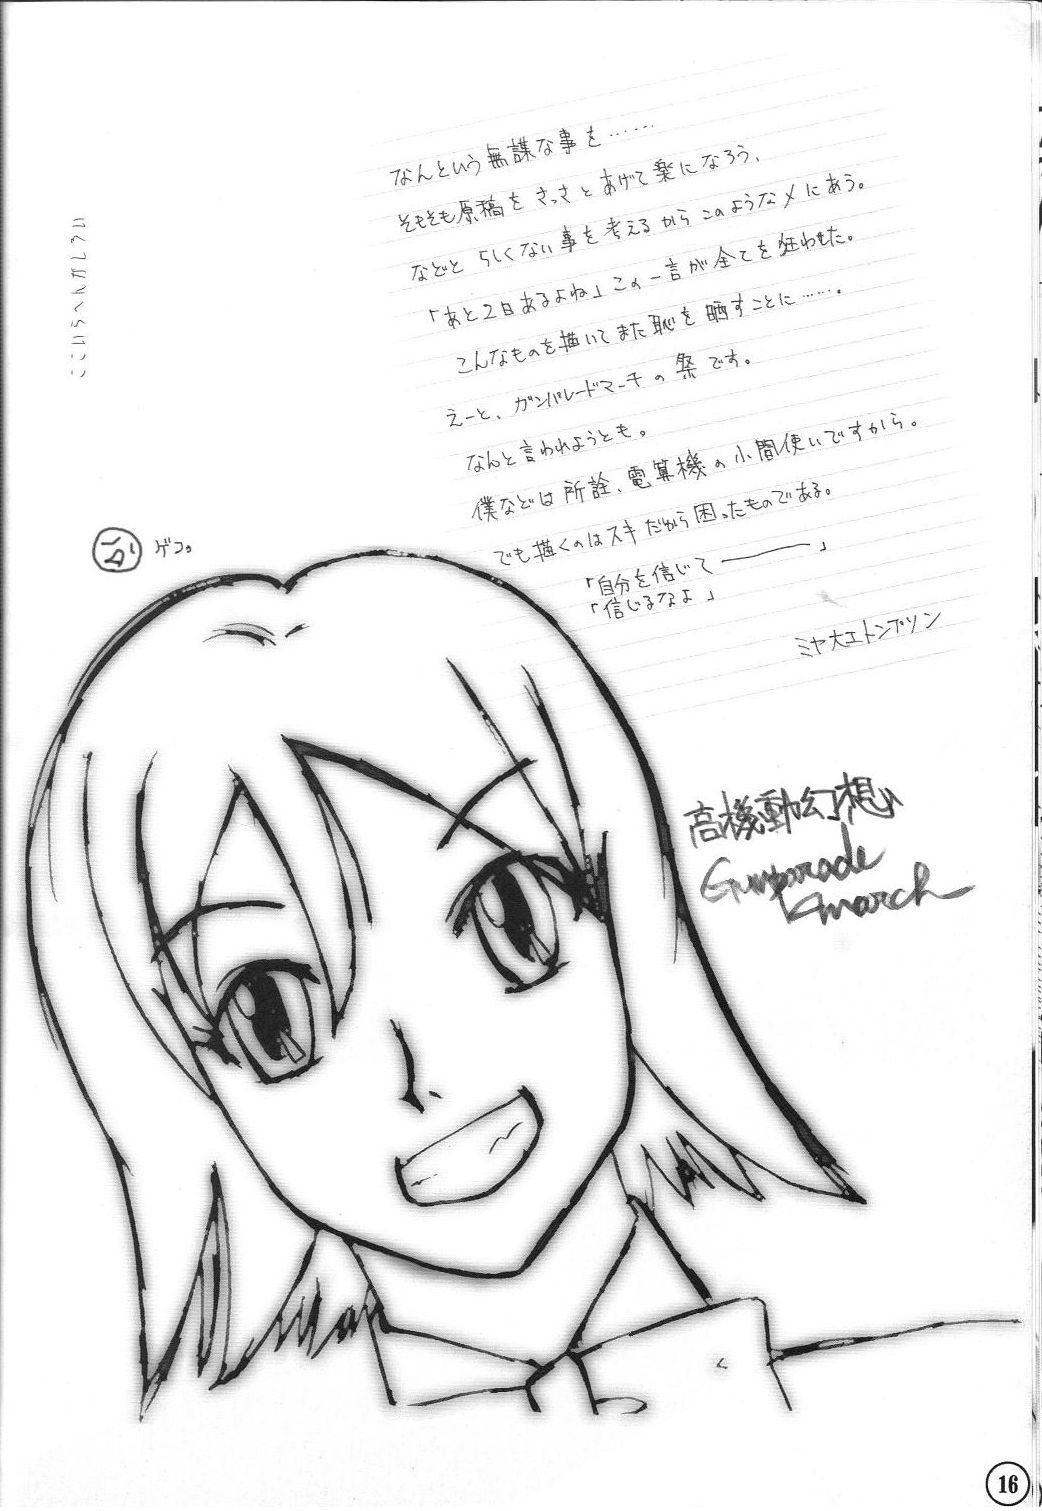 なんという無謀な事を……
そもそも原稿をさっさとあげて楽になろう、
などとらしくない事を考えるからこのようなメにあう。
「あと2日あるよね」この一言が全てを狂わせた。
こんなものを描いてまた恥を晒すことに……。
えーと、ガンパレードマーチの祭です。
なんと言われようとも。
僕などは所詮、電算機の小間使いですから。
でも描くのはスキだから困ったものである。
「自分を信じて――」
「信じるなよ」
ミヤ大エトンプソン
ゲコ。
高機動幻想
Gunparade
march
16